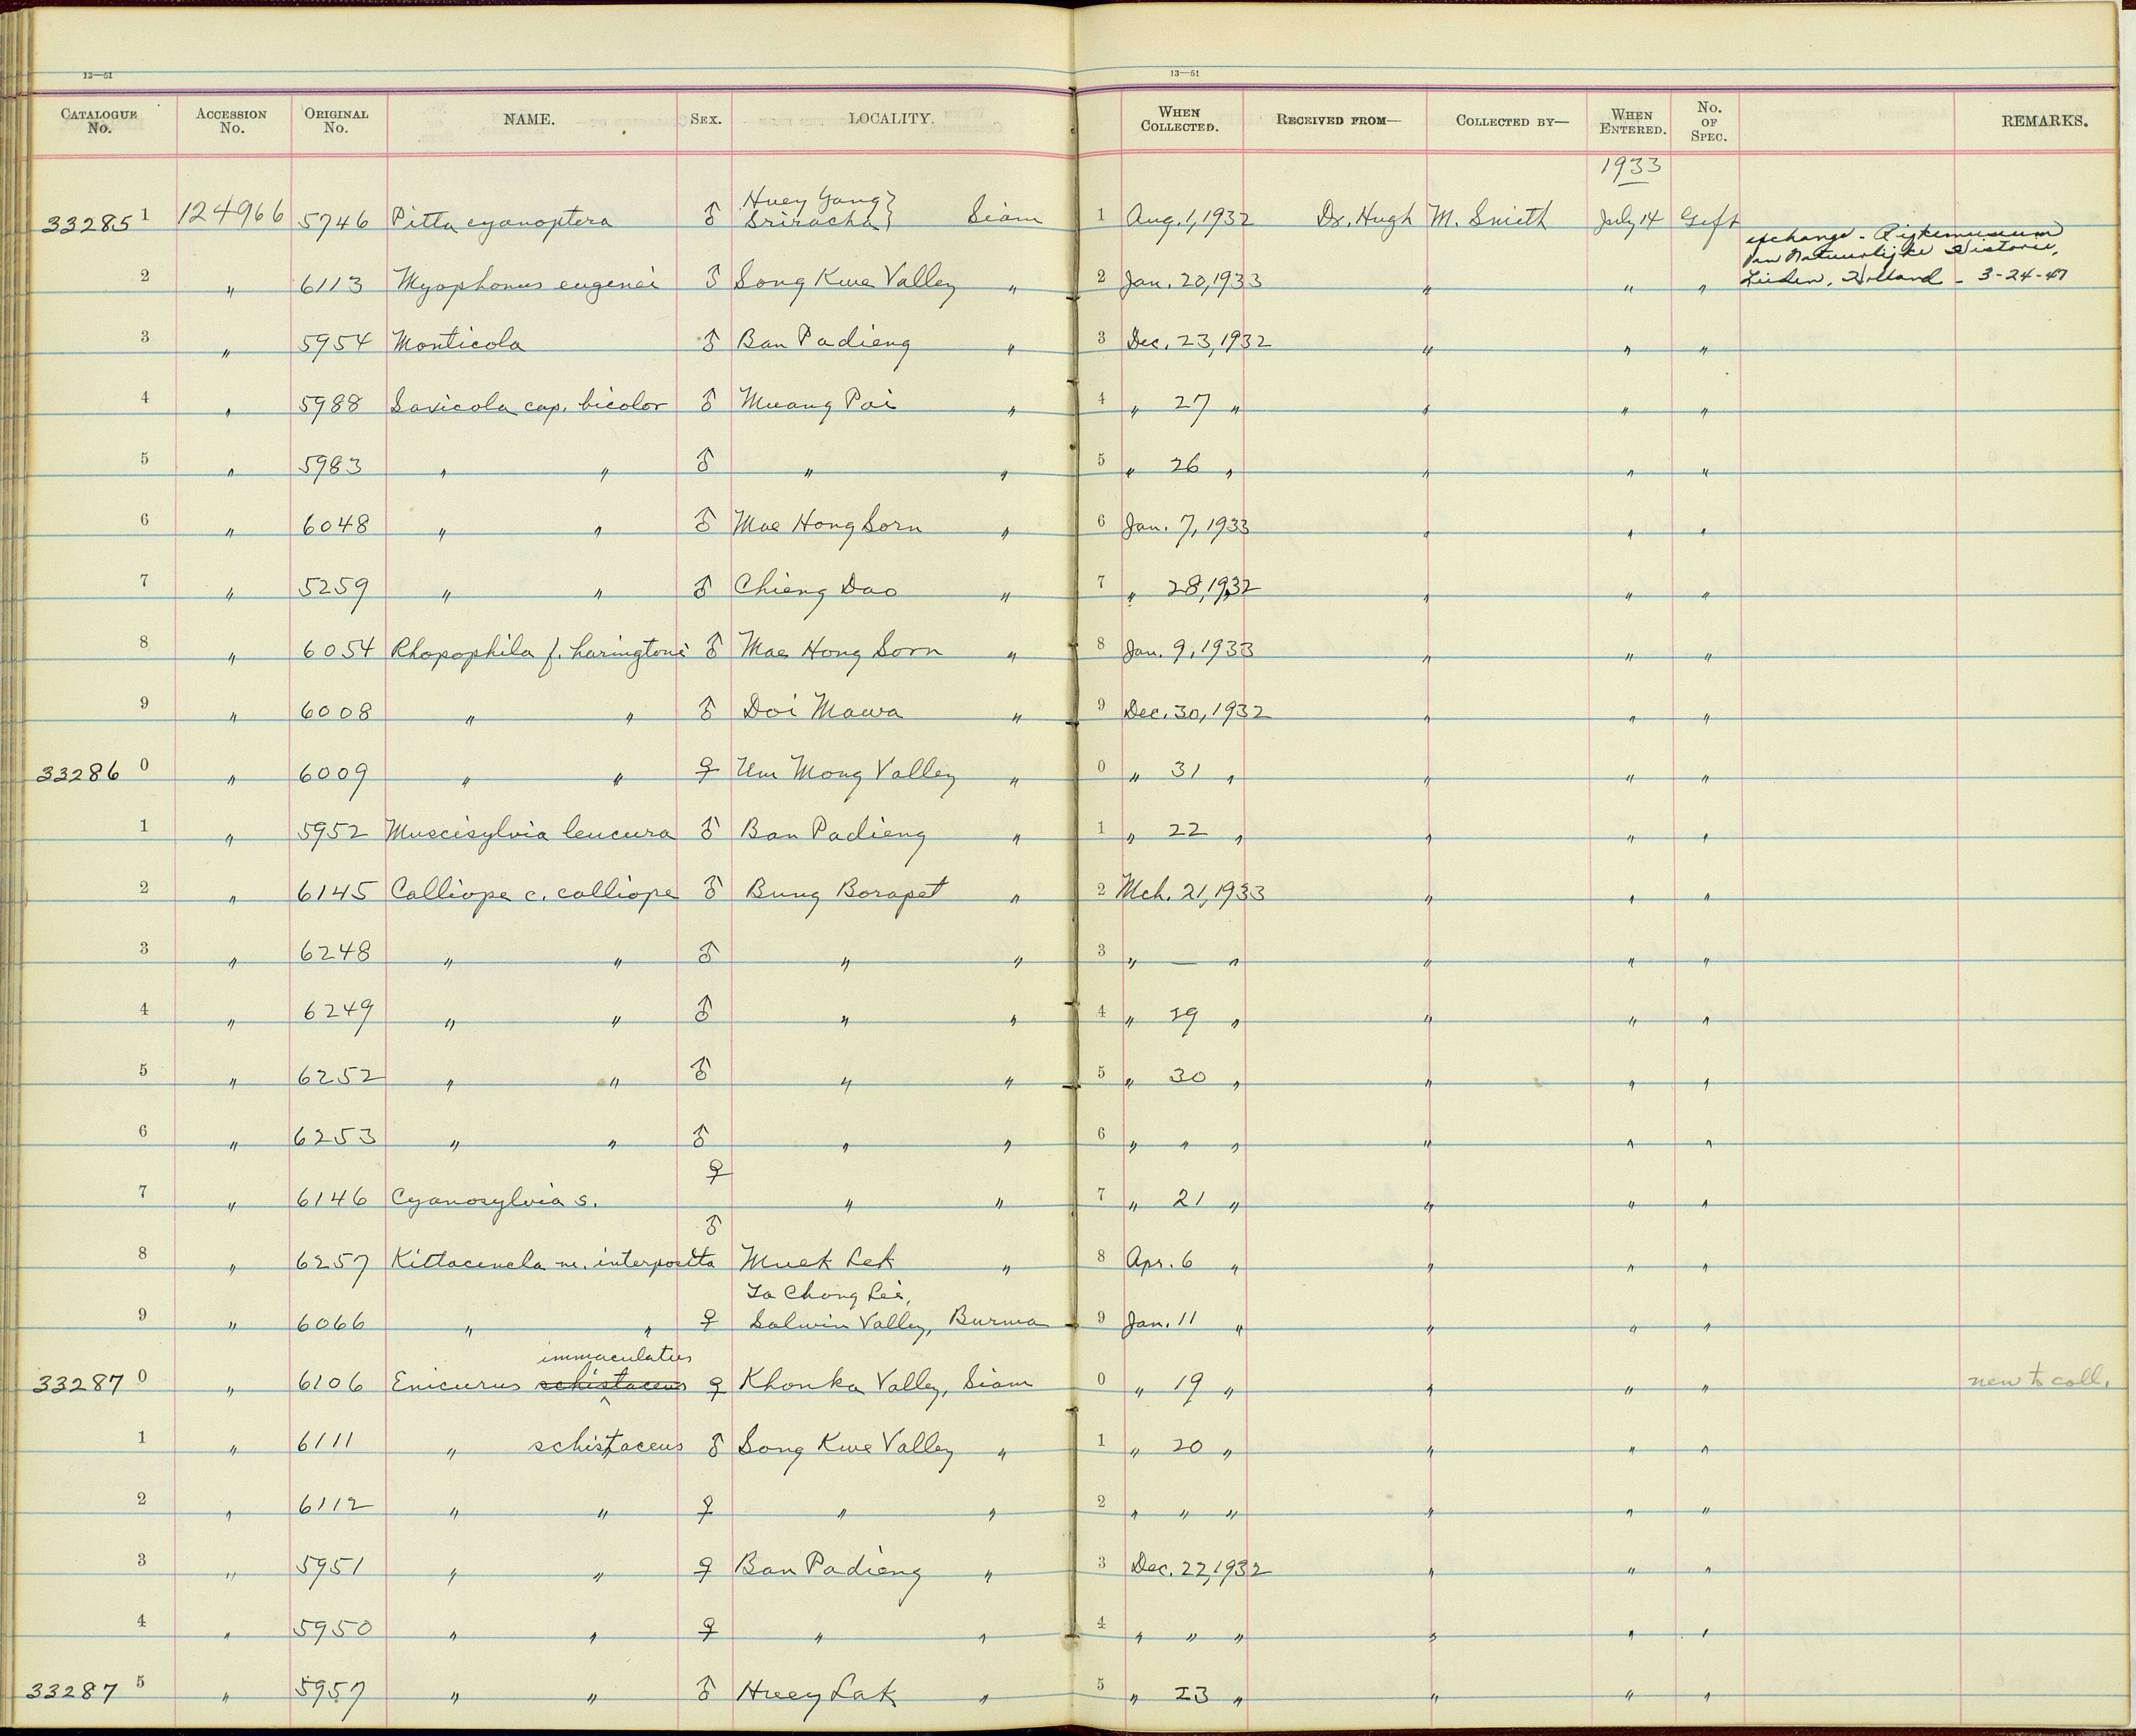 13—51 13—51
CATALOGUE No. ACCESSION No. ORIGINAL No. NAME. SEX. LOCALITY. WHEN COLLECTED. RECEIVED FROM— COLLECTED BY— WHEN ENTERED. No. OF SPEC. REMARKS.
1933
33285 1 124966 5746 Pitta cyanoptera ♂ Huey Yang } Sriracha } Siam 1 Aug. 1, 1932 Dr. Hugh M. Smith July 14 Gift
exchange - Rijksmuseum
van Natuurlijke Historie,
2 " 6113 Myophonus eugenei ♂ Song Kwe Valley " 2 Jan. 20, 1933 " " " Leiden, Holland - 3-24-47
3 " 5954 Monticola ♂ Ban Padieng " 3 Dec. 23, 1932 " " "
4 " 5988 Saxicola cap. bicolor ♂ Muang Pai " 4 " 27 " " " "
5 " 5983 " " ♂ " " 5 " 26 " " " "
6 " 6048 " " ♂ Mae Hong Sorn " 6 Jan. 7, 1933 " " "
7 " 5259 " " ♂ Chieng Dao " 7 " 28, 1932 " " "
8 " 6054 Rhopophila f. haringtoni ♂ Mae Hong Sorn " 8 Jan. 9, 1933 " " "
9 " 6008 " " ♂ Doi Mawa " 9 Dec. 30, 1932 " " "
33286 0 " 6009 " " ♀ Um Mong Valley " 0 " 31 " " " "
1 " 5952 Muscisylvia leucura ♂ Ban Padieng " 1 " 22 " " " "
2 " 6145 Calliope c. calliope ♂ Bung Borapet " 2 Mch. 21, 1933 " " "
3 " 6248 " " ♂ " " 3 " — " " " "
4 " 6249 " " ♂ " " 4 " 29 " " " "
5 " 6252 " " ♂ " " 5 " 30 " " " "
6 " 6253 " " ♂ " " 6 " " " " " "
7 " 6146 Cyanosylvia s. ♀ " " 7 " 21 " " " "
8 " 6257 Kittacincla m. interposita ♂ Muek Lek " 8 Apr. 6 " " " "
Ta Chong Lei,
9 " 6066 " " ♀ Salwin Valley, Burma 9 Jan. 11 " " " "
immaculatus
33287 0 " 6106 Enicurus schistaceus ♀ Khonka Valley, Siam 0 " 19 " " " " new to coll.
1 " 6111 " schistaceus ♂ Song Kwe Valley " 1 " 20 " " " "
2 " 6112 " " ♀ " " 2 " " " " " "
3 " 5951 " " ♀ Ban Padieng " 3 Dec. 22, 1932 " " "
4 " 5950 " " ♀ " " 4 " " " " " "
33287 5 " 5957 " " ♂ Huey Lak " 5 " 23 " " " "